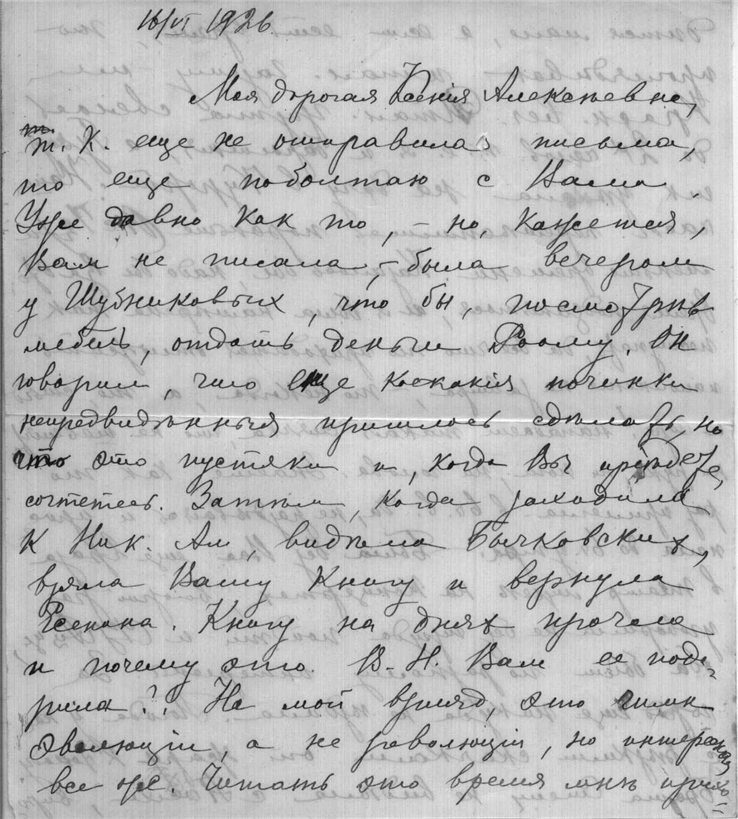 16/VI 1926.
Моя дорогая Ксенія Алексѣевна,
т. к. еще не отправила письма,
то еще поболтаю с Вами.
Уже давно как то, – но, кажется,
Вам не писала, – была вечером
у Шубниковых, что бы, посмотрѣв
мебель, отдать деньги Роому. Он
говорил, что еще коекакія починки
непредвидѣнныя пришлось сдѣлать, но
что это пустяки и, когда Вы пріѣдете,
сочтетесь. Затѣм, когда заходила
к Ник. Ал, видѣла Бычковских,
взяла Вашу книгу и вернула
Есенина. Книгу на днях прочела
и почему это В. Н. Вам ее пода-
рила?! На мой взгляд, это гимн
эволюціи, а не революціи, но интересная
все же. Читать это время мнѣ